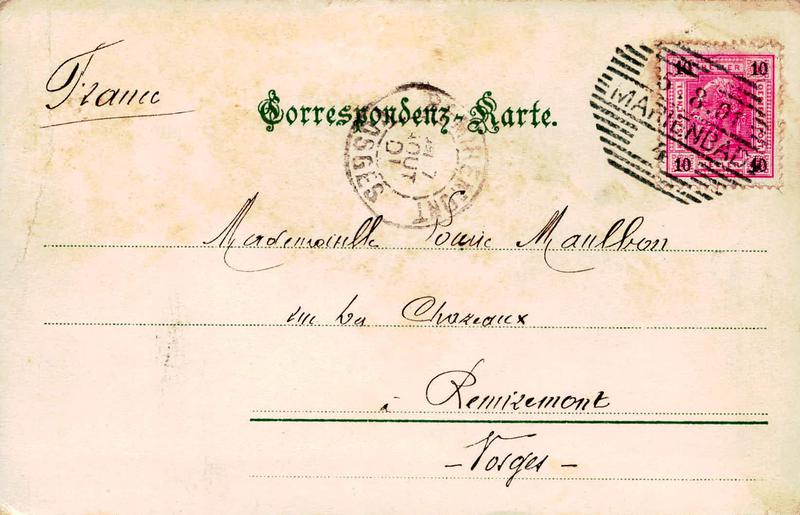 France
Correspondenz-Karte.
10 10
5 8.01
MARIENBAD
4
10 10
REMIREMONT
7
AOUT
01
VOSGES
Mademoiselle Louise Maulbon
rue La Chozeaux
à Remiremont
- Vosges -